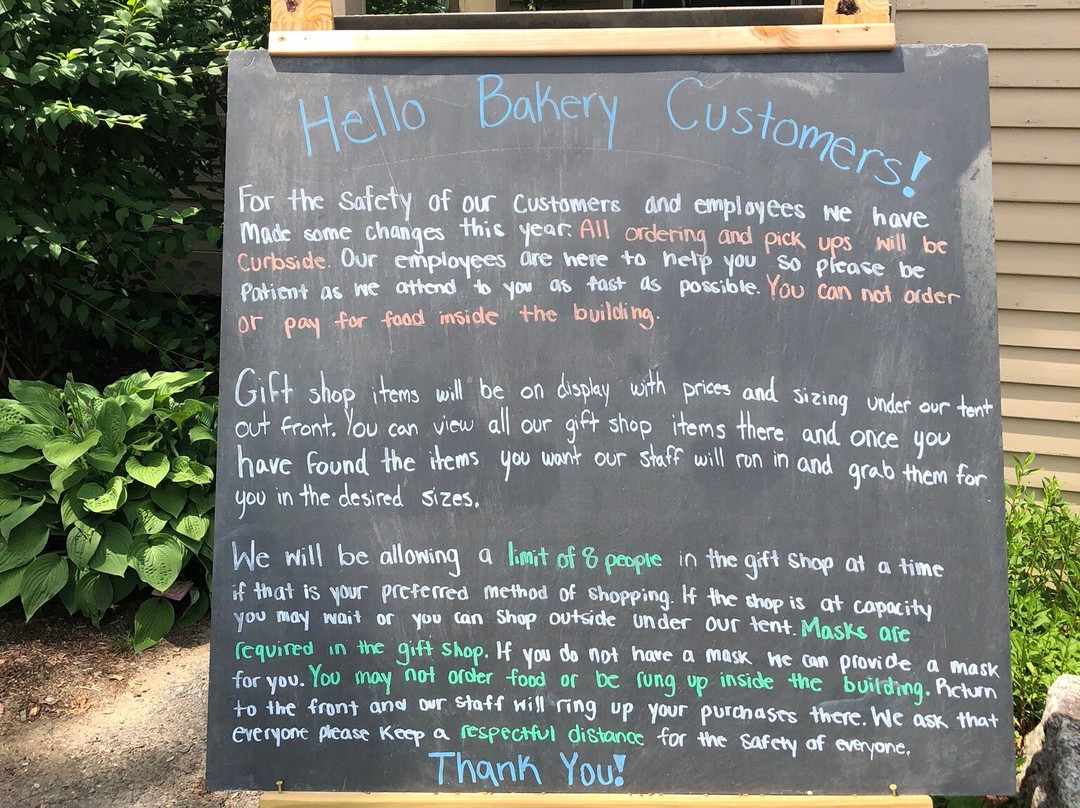 Hello Bakery Customers!
For the safety of our customers and employees we have
Made some changes this year. All ordering and pick ups will be
curbside. Our employees are here to help you so please be
Patient as we attend to you as fast as possible. You can not order
or pay for food inside the building.
Gift shop items will be on display with prices and sizing under our tent
out front. You can view all our gift shop items there and once you
have found the items you want our staff will run in and grab them for
you in the desired sizes.
We will be allowing a limit of 8 people in the gift shop at a time
if that is your preferred method of shopping. If the shop is at capacity
you may wait or you can shop outside under our tent. Masks are
required in the gift shop. If you do not have a mask we can provide a mask
for you. You may not order food or be rung up inside the building. Return
to the front and our staff will ring up your purchases there. We ask that
everyone please keep a respectful distance for the safety of everyone.
Thank You!